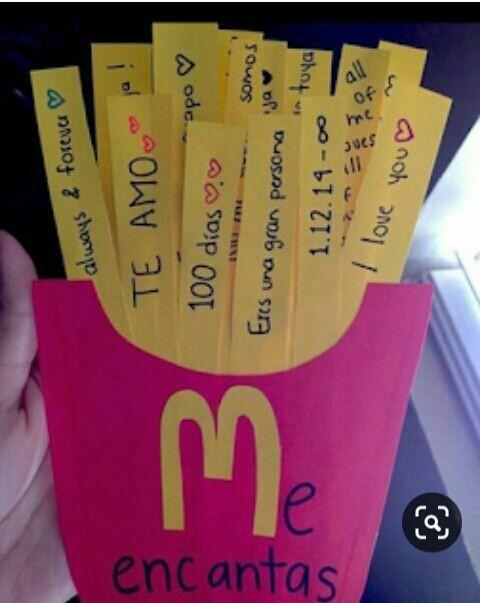 always & forever
TE AMO
100 días
Eres una gran persona
1.12.19-∞
I love you
somos
tuya
all
of
me
Me
encantas